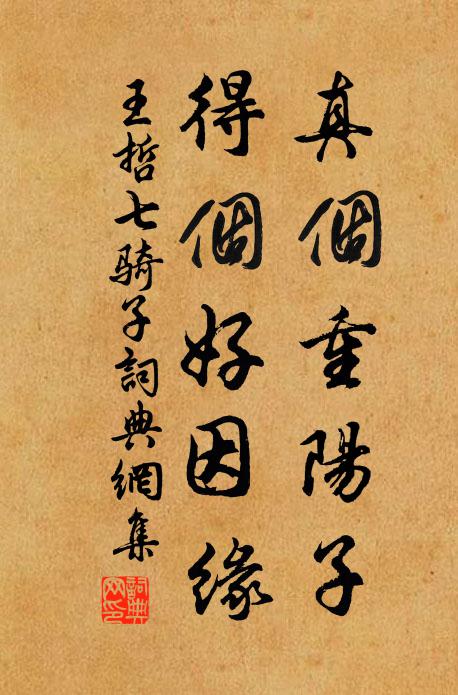 真個重陽子
得個好因緣
王哲七騎子詞典網集
詞典
网印